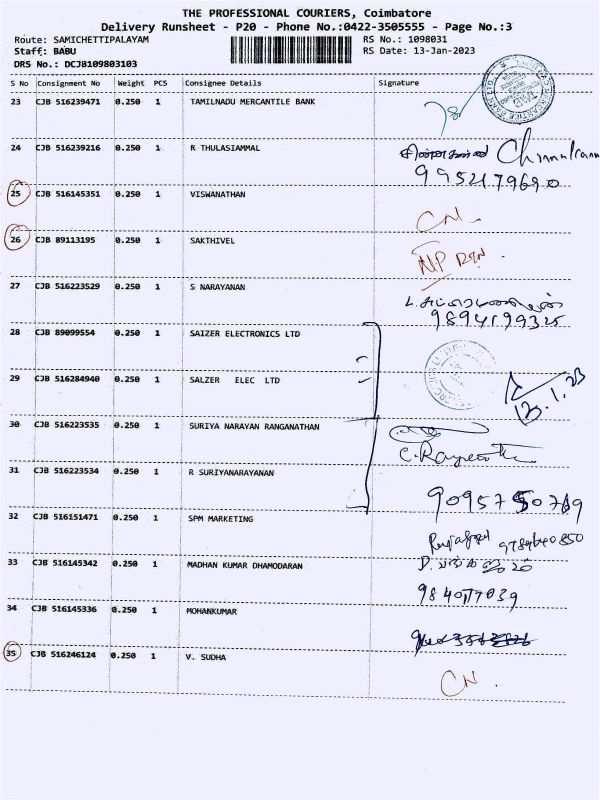 THE PROFESSIONAL COURIERS, Coimbatore
Delivery Runsheet - P20 - Phone No.:0422-3505555 - Page No.:3
Route: SAMICHETTIPALAYAM RS No.: 1098031
Staff: BABU RS Date: 13-Jan-2023
DRS No.: DCJB109803103
S No Consignment No Weight PCS Consignee Details Signature
23 CJB 516239471 0.250 1 TAMILNADU MERCANTILE BANK
24 CJB 516239216 0.250 1 R THULASIAMMAL
25 CJB 516145351 0.250 1 VISWANATHAN
CN
26 CJB 89113195 0.250 1 SAKTHIVEL
NP
27 CJB 516223529 0.250 1 S NARAYANAN
9894199325
28 CJB 89099554 0.250 1 SAIZER ELECTRONICS LTD
29 CJB 516284940 0.250 1 SALZER ELEC LTD
13.1.23
30 CJB 516223535 0.250 1 SURIYA NARAYAN RANGANATHAN
31 CJB 516223534 0.250 1 R SURIYANARAYANAN
32 CJB 516151471 0.250 1 SPM MARKETING
33 CJB 516145342 0.250 1 MADHAN KUMAR DHAMODARAN
34 CJB 516145336 0.250 1 MOHANKUMAR
35 CJB 516246124 0.250 1 V. SUDHA
CN.